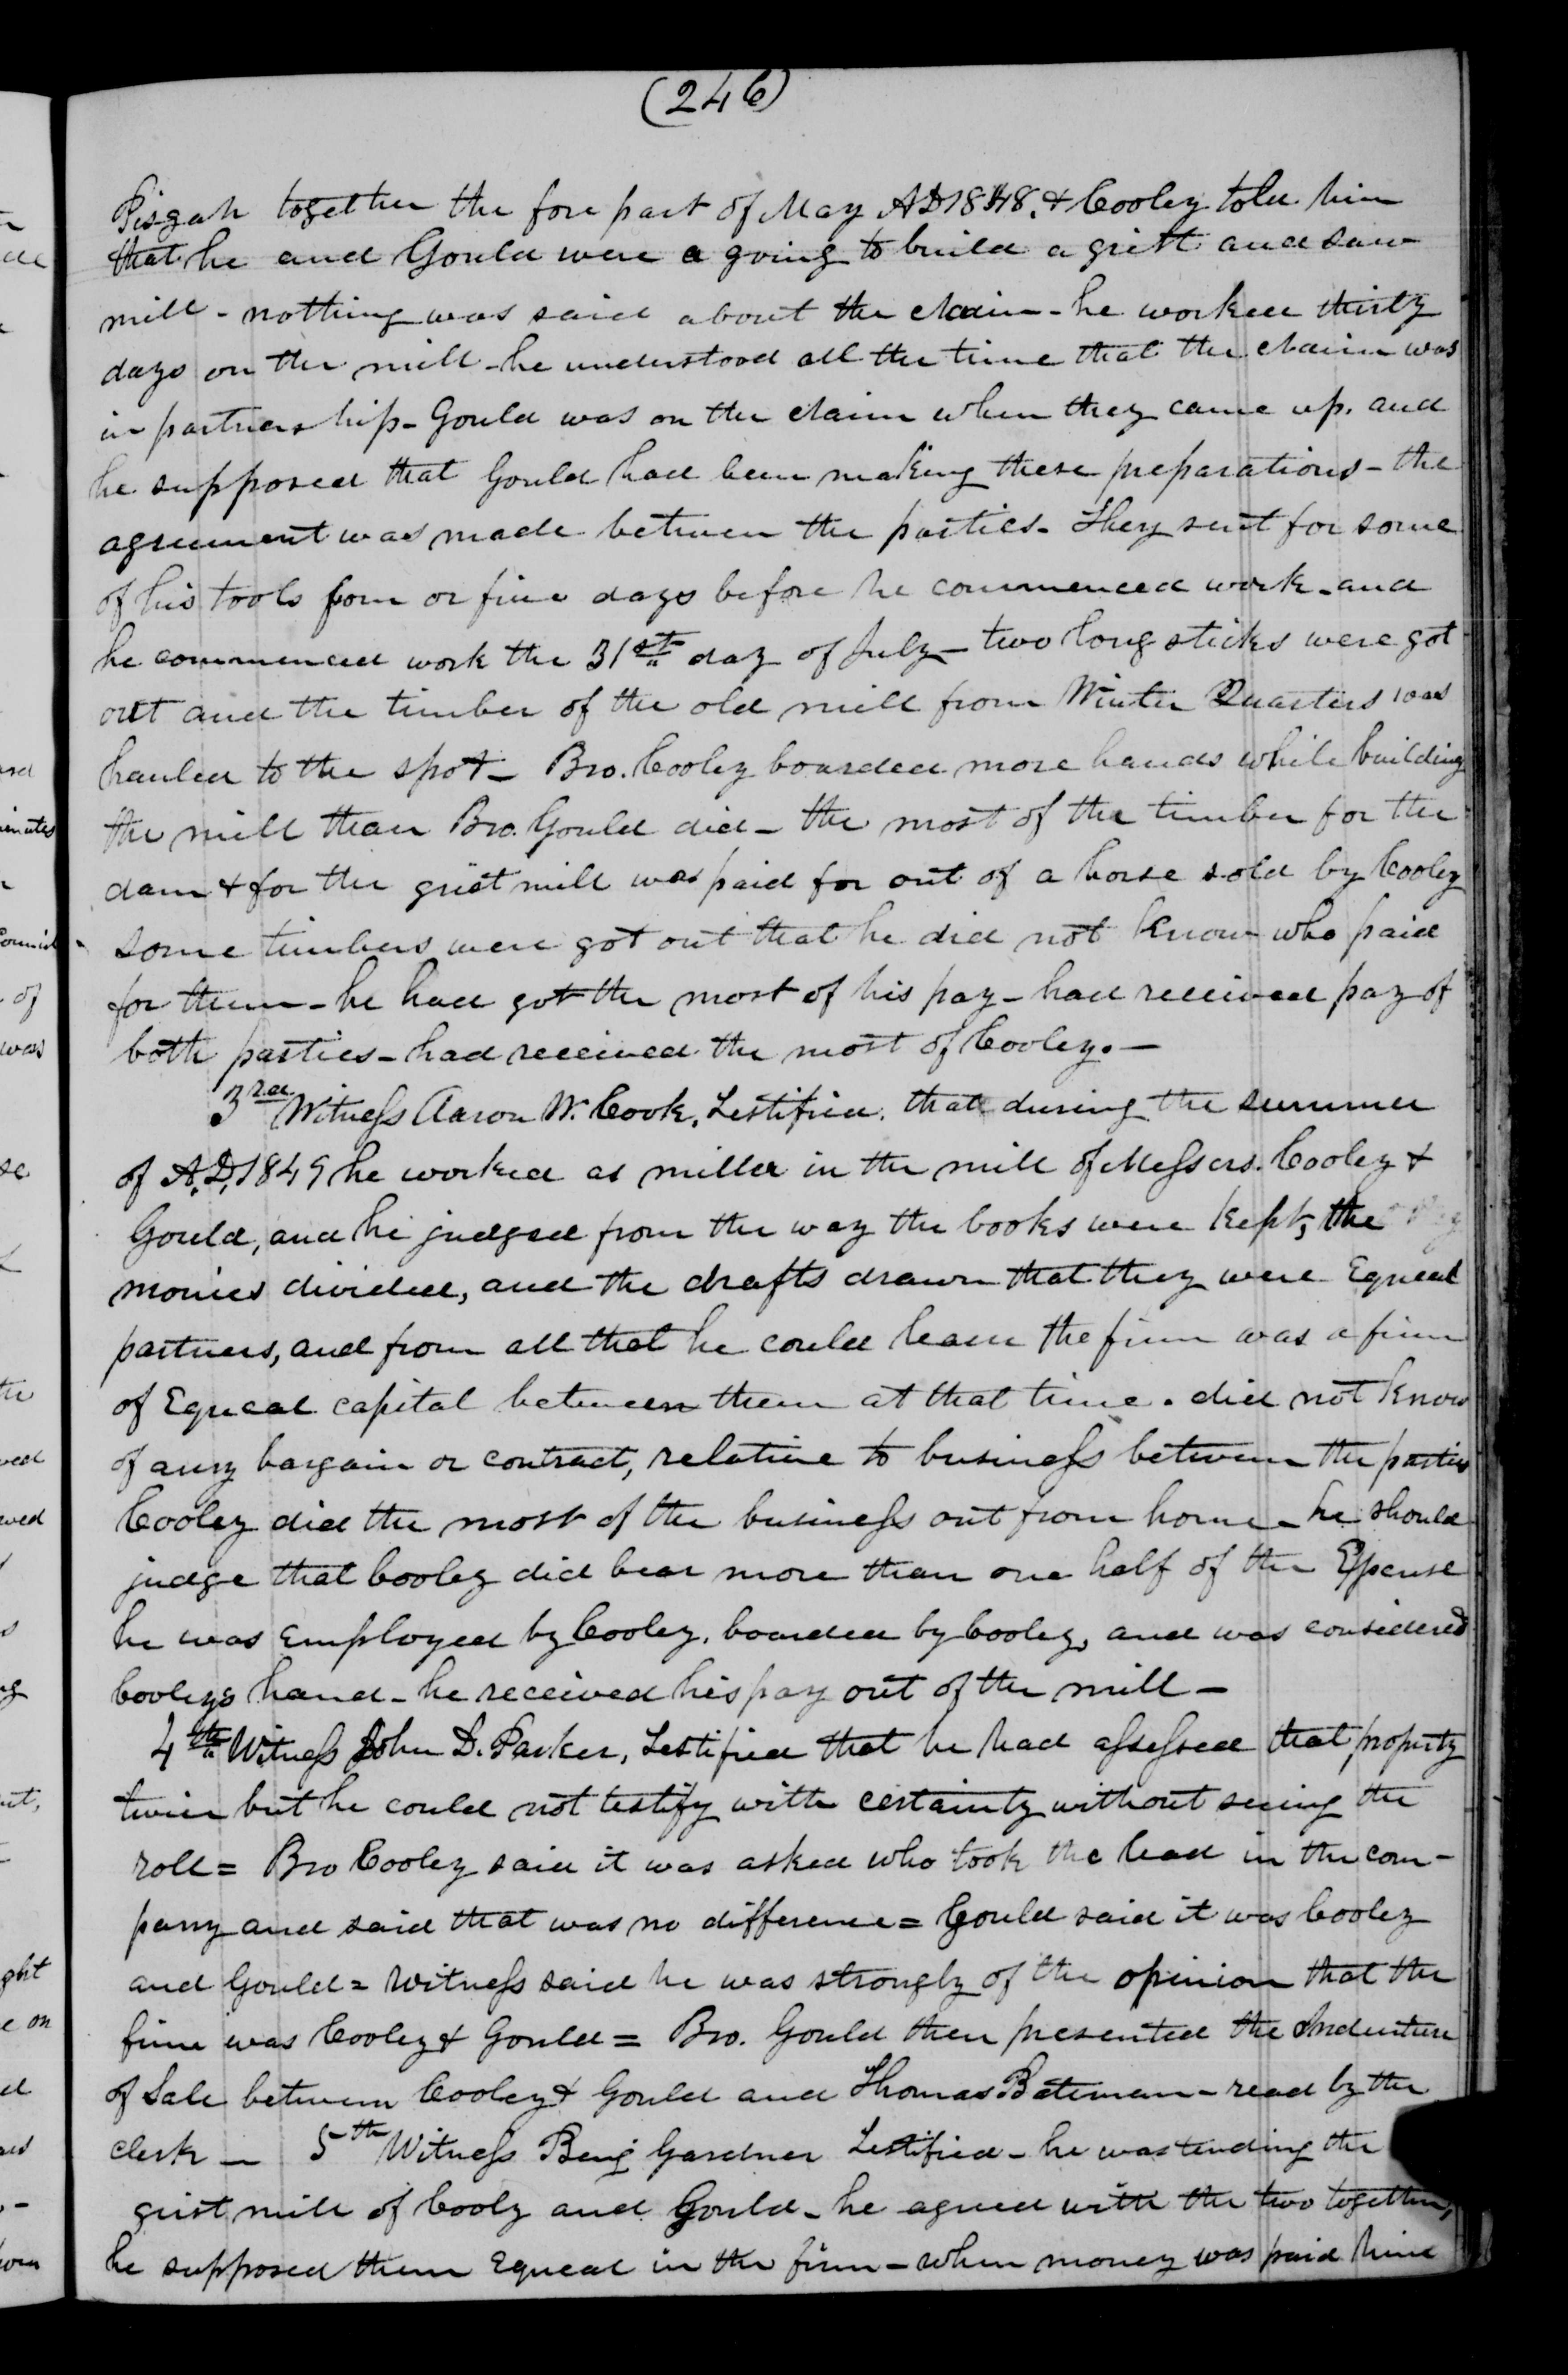 (246)
Pisgah together the fore part of May AD 1848, & Cooley told him
that he and Gould were a going to build a grist and saw
mill - nothing was said about the claim - he worked thirty
days on the mill - he understood all the time that the claim was
in partnership - Gould was on the claim when they came up, and
he supposed that Gould had been making these preparations - the
agreement was made between the parties - They sent for some
of his tools four or five days before he commenced work - and
he commenced work the 31st day of July - two long sticks were got
out and the timber of the old mill from Winter Quarters was
hauled to the spot - Bro. Cooley boarded more hands while building
the mill than Bro. Gould did - the most of the timber for the
dam & for the grist mill was paid for out of a horse sold by Cooley
some timbers were got out that he did not know who paid
for them - he had got the most of his pay - had received pay of
both parties - had received the most of Cooley. -
3rd Witness Aaron W. Cook, Testified, that during the summer
of A.D. 1849 he worked as miller in the mill of Messers. Cooley &
Gould, and he judged from the way the books were kept, the
monies divided, and the drafts drawn that they were Equeal
partners, and from all that he could learn the firm was a firm
of Equeal capital between them at that time. did not know
of any bargain or contract, relative to business between the parties
Cooley did the most of the business out from home - he should
judge that Cooley did bear more than one half of the Expense
he was Employed by Cooley, boarded by Cooley, and was considered
Cooleys hand - he received his pay out of the mill -
4th Witness John D. Parker, Testified that he had assessed that property
twice but he could not testify with certainty without seeing the
roll = Bro Cooley said it was asked who took the lead in the com-
pany and said that was no difference = Gould said it was Cooley
and Gould = Witness said he was strongly of the opinion that the
firm was Cooley & Gould = Bro. Gould then presented the Indenture
of Sale between Cooley & Gould and Thomas Bateman - read by the
clerk - 5th Witness Benj Gardner Testified - he was tending the
grist mill of Cooly and Gould - he agreed with the two together,
he supposed them Equeal in the firm - when money was paid him